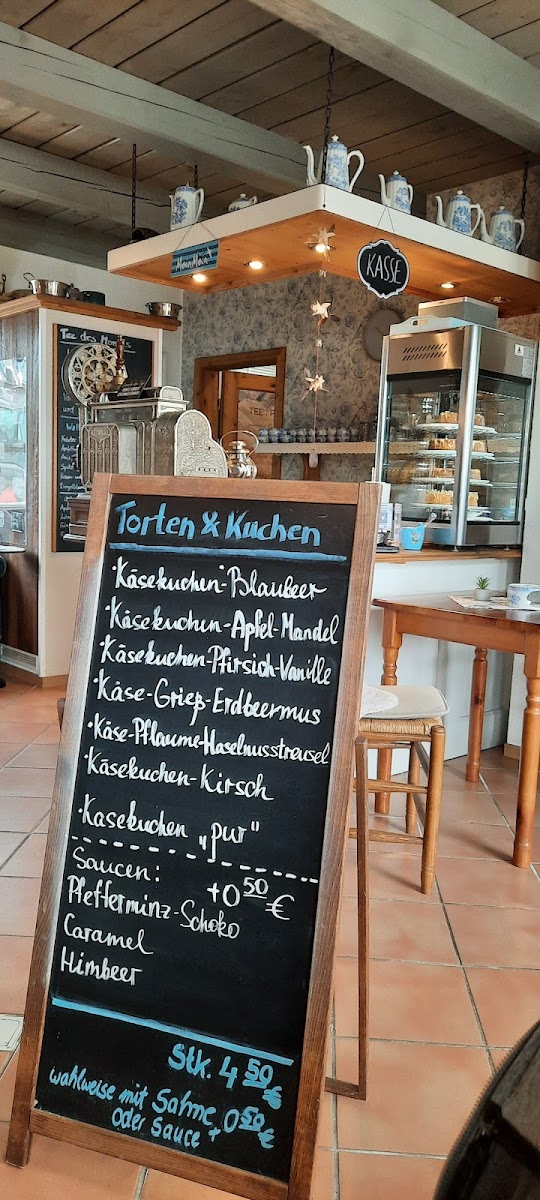 KASSE
Tee des Mon
TEE
Torten & Kuchen
·Käsekuchen-Blaubeer
·Käsekuchen-Apfel-Mandel
·Käsekuchen-Pfirsich-Vanille
·Käse-Grieß-Erdbeermus
·Käse-Pflaume-Haselnusstreusel
·Käsekuchen-Kirsch
·Kasekuchen „pur"
Saucen: +0 50 €
Pfefferminz-Schoko
Caramel
Himbeer
Stk. 4 50 €
wahlweise mit Sahne
oder Sauce + 0 50 €